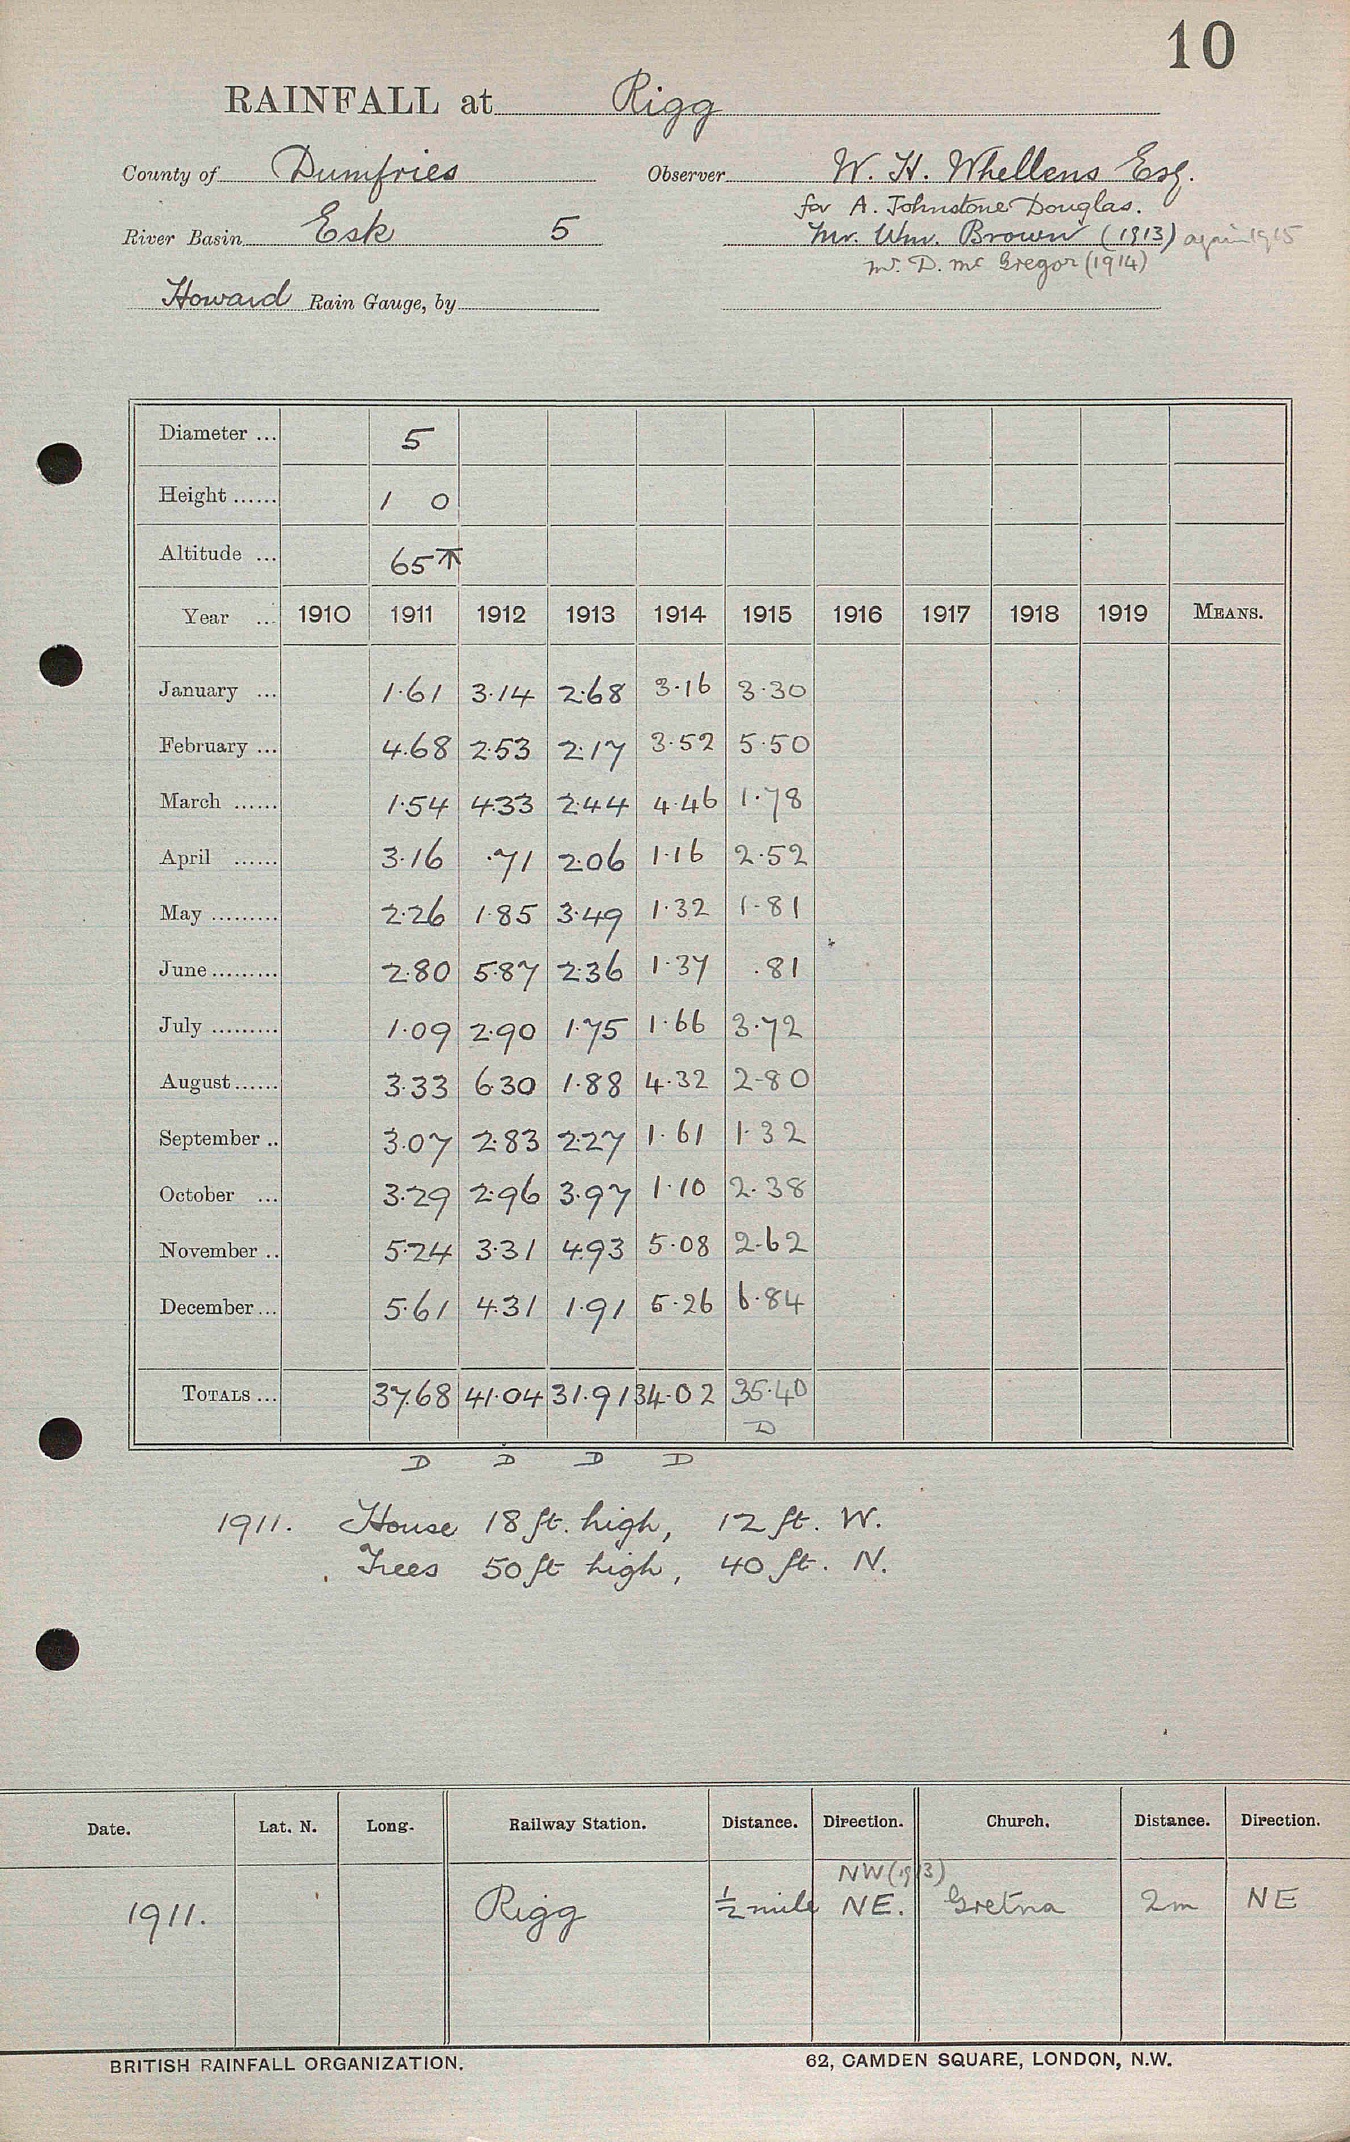 10
RAINFALL at Rigg
County of Dumfries Observer W. H. Whellens Esq.
for A. Johnstone Douglas.
River Basin Esk 5 Mr. Wm. Brown (1913) again 1915
Mr. D. Mc Gregor (1914)
Howard Rain Gauge, by
Diameter ... 5
Height ...... 1 0
Altitude ... 65
Year ... 1910 1911 1912 1913 1914 1915 1916 1917 1918 1919 MEANS.
January ... 1.61 3.14 2.68 3.16 3.30
February ... 4.68 2.53 2.17 3.52 5.50
March ...... 1.54 4.33 2.44 4.46 1.78
April ...... 3.16 .71 2.06 1.16 2.52
May ......... 2.26 1.85 3.49 1.32 1.81
June ......... 2.80 5.87 2.36 1.37 .81
July ......... 1.09 2.90 1.75 1.66 3.72
August ...... 3.33 6.30 1.88 4.32 2.80
September .. 3.07 2.83 2.27 1.61 1.32
October ... 3.29 2.96 3.97 1.10 2.38
November .. 5.24 3.31 4.93 5.08 2.62
December ... 5.61 4.31 1.91 5.26 6.84
TOTALS ... 37.68 41.04 31.91 34.02 35.40
D
D D D D
1911. House 18 ft. high, 12 ft. W.
Trees 50 ft high, 40 ft. N.
Date. Lat. N. Long. Railway Station. Distance. Direction. Church. Distance. Direction.
NW (1913)
1911. Rigg ½ mile NE. Gretna 2m NE
BRITISH RAINFALL ORGANIZATION. 62, CAMDEN SQUARE, LONDON, N.W.